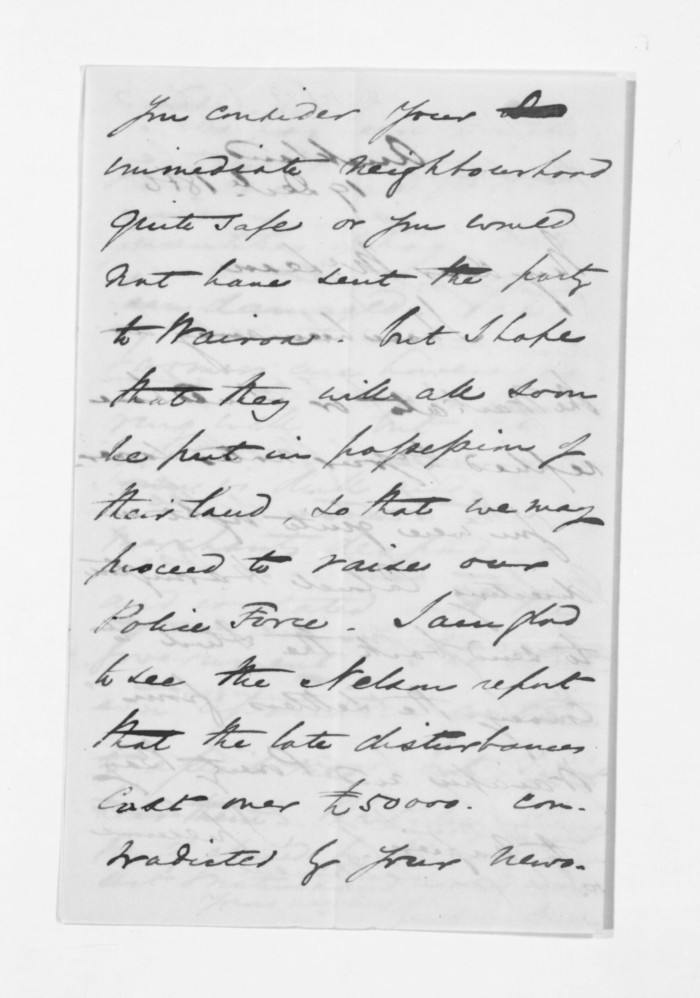 You consider your
immediate neighbourhood
quite safe or you would
not have sent the party
to Wairoa. but I hope
that they will all soon
be put in possession of
their land, so that we may
proceed to raise our
Police Force. I am glad
to see the Nelson report
that the late disturbances
cost over £50000. con-
tradicted by your news-